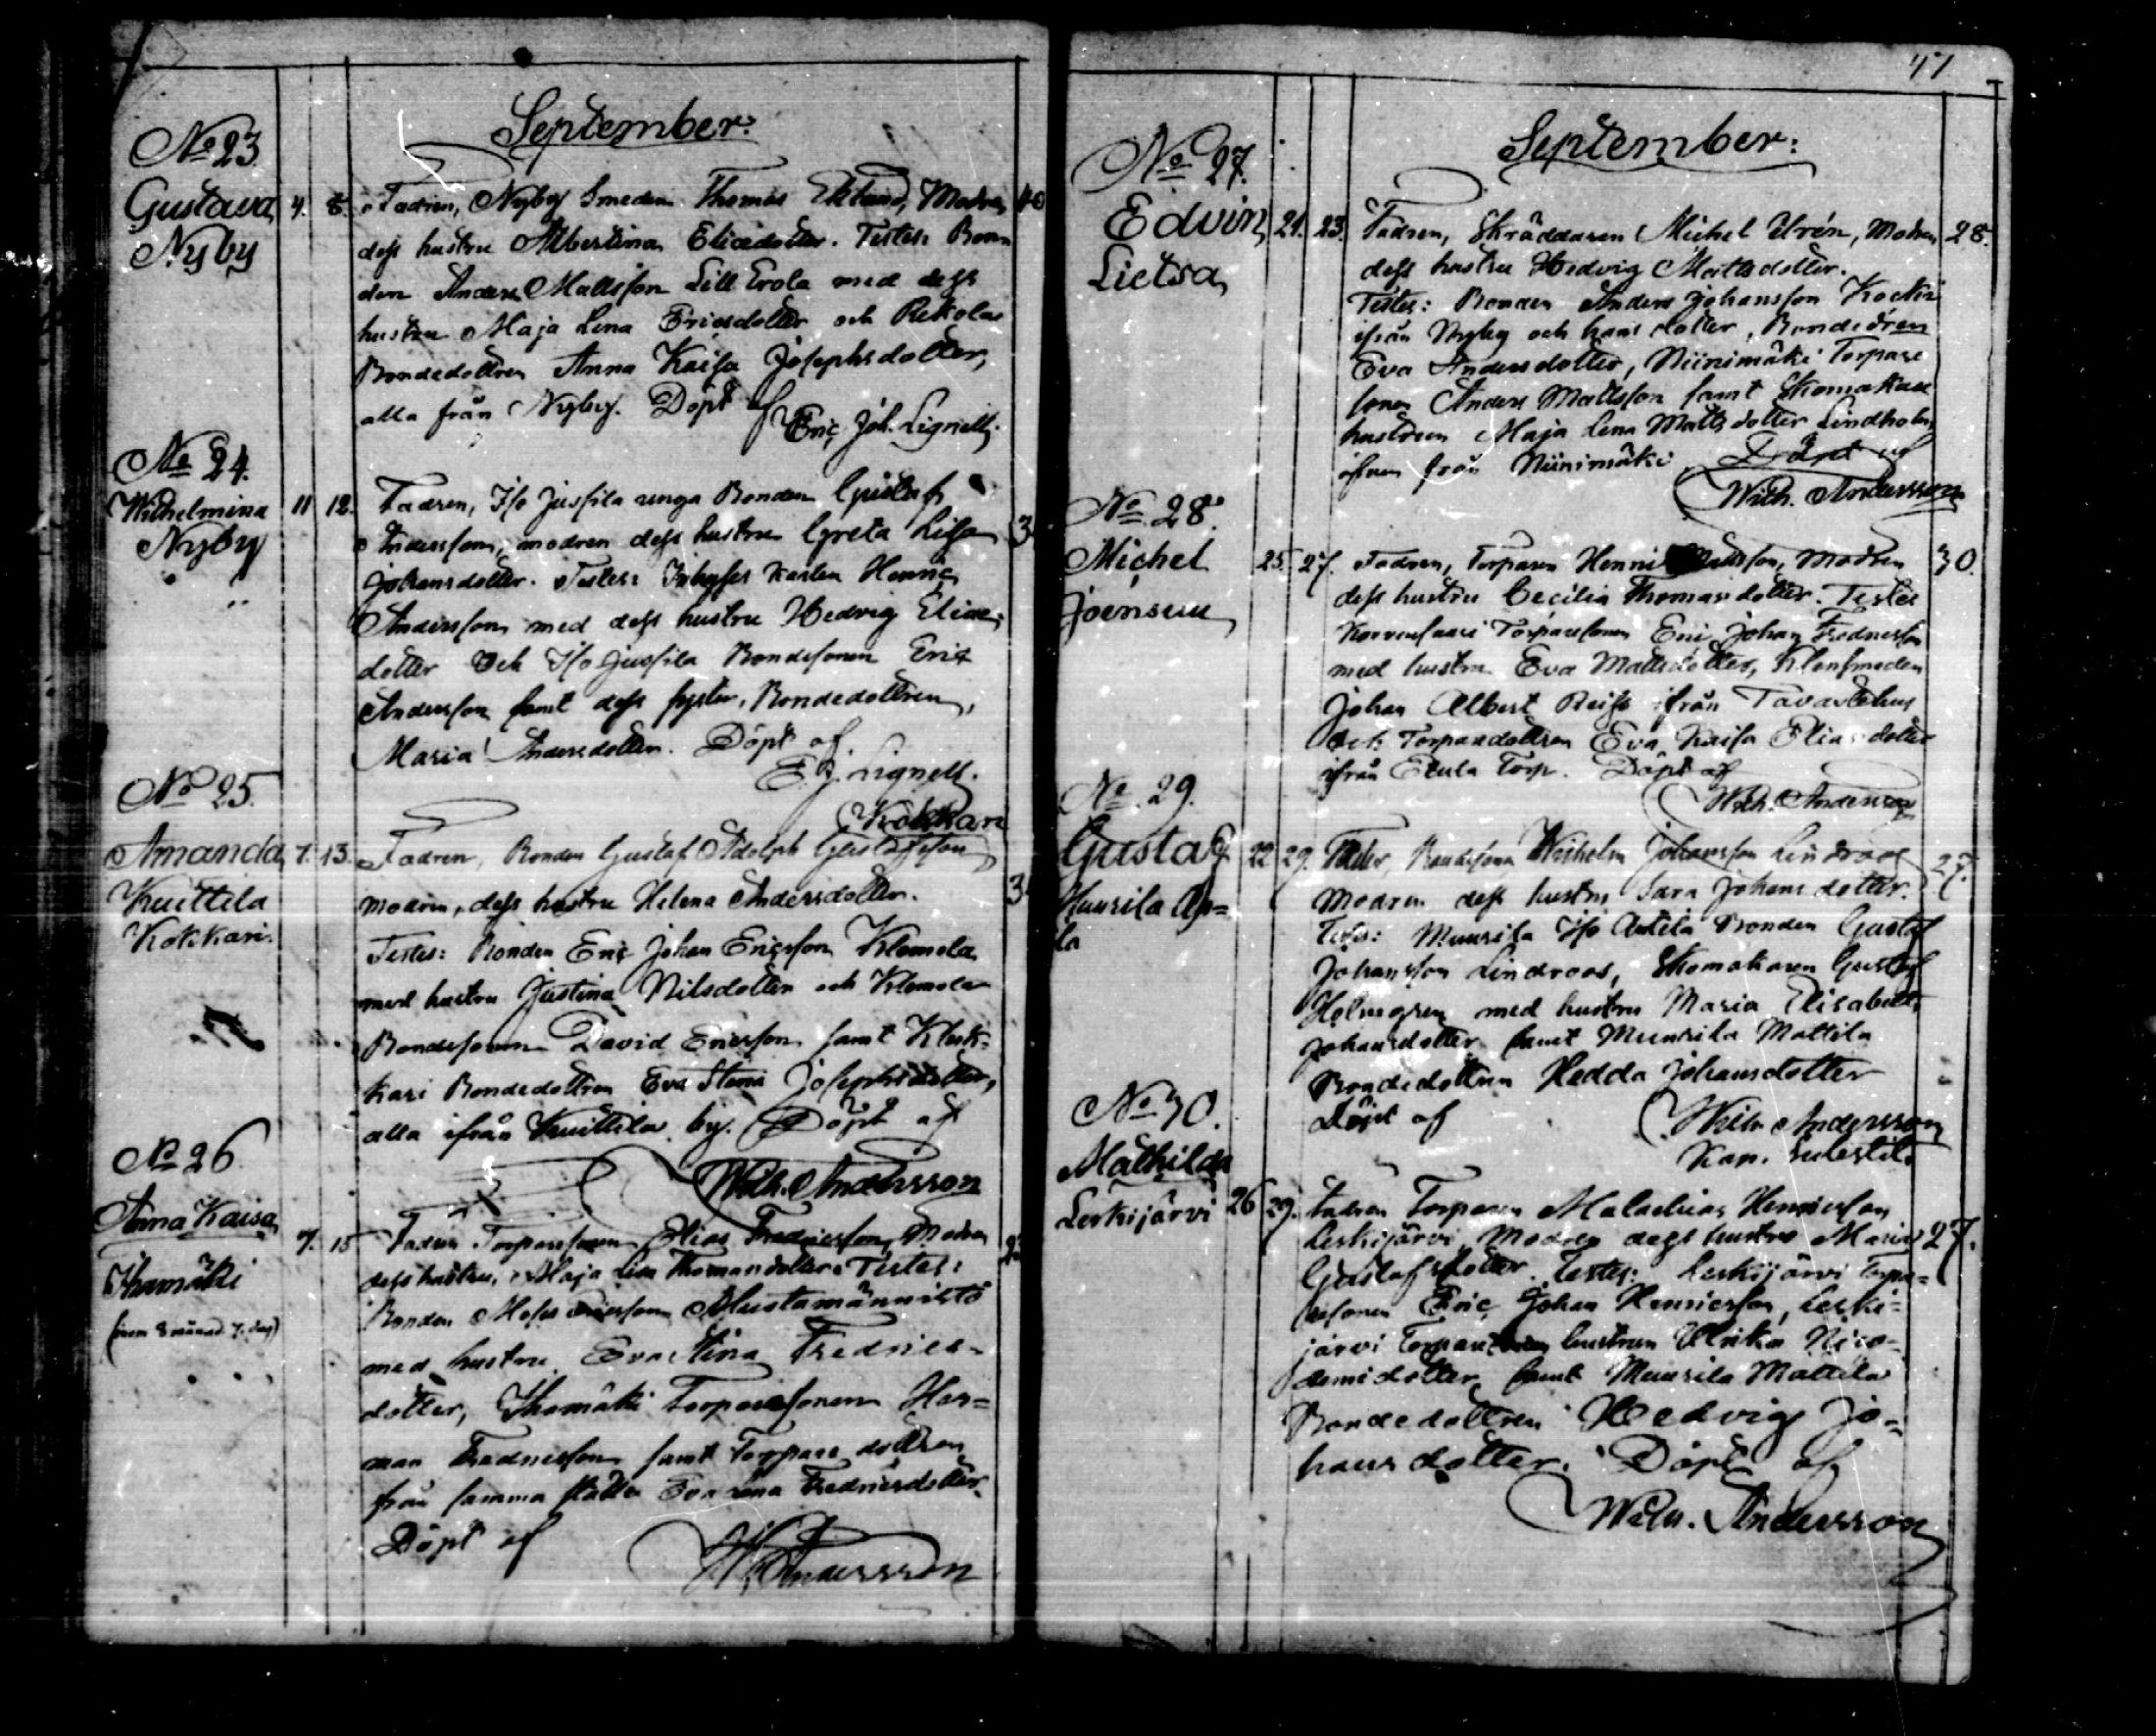 September:
No 23.
Gustava 4. 8. Fadren, Nyby Smeden Thomas Eklund, Modren 40
Nyby
dess hustru Albertina Eliædotter. Testes: Bon
den Anders Mattsson Lill Erola med dess
hustru Maja Lena Ericsdotter och Rekola
Bondedottren Anna Kaisa Josephsdotter,
alla från Nyby. Döpt af
Eric Joh. Lignell.
No 24.
Wilhelmina 11 12. Fadren, Iso Jussila unga Bonden Gustaf
Nyby
Andersson, modren dess hustru Greta Lisa 3
Johansdotter. Testes: Inhyses Karlen Henric
Andersson med dess hustru Hedvig Eliæ
dotter och Iso Jussila Bondesonen Eric
Andersson samt dess syster, Bondedottren,
Maria Andersdotter. Döpt af
E. J. Lignell.
No 25.
Kokkari
Amanda 7. 13. Fadren, Bonden Gustaf Adolph Gustafsson
Kuittila
Kokkari.
modren, dess hustru Helena Andersdotter. 3
Testes: Bonden Eric Johan Ericsson Klemola
med hustru Justina Nilsdotter och Klemola
Bondesonen David Ericsson samt Kluk=
kari Bondedottren Eva Stina Josephsdotter,
alla ifrån Kuittila by. Döpt af
Wilh. Andersson
No 26
Anna Kaisa
Ihamäki
7. 15 Fadren Torparesonen Elias Fredriesson, Modren
dess hustru, Maja Lisa Thomasdotter. Testes:
Bonden Moses Ericsson Mustamännistö
med hustru Eva Stina Fredries-
dotter, Ihamäki Torparesonen Her=
man Fredriesson samt Torpare dottren
från samma ställe Eva Lena Fredriesdotter.
Döpt af
W Andersson
47
September:
No 27.
Edvin 21. 23. Fadren, Skräddaren Michel Urén, Modren 28.
Lietsa
dess hustru Hedvig Mattsdotter.
Testes: Bonden Anders Johansson Kocki
ifrån Nyby och hans dotter, Bondedren
Eva Andersdotter, Niinimäki Torpare
sonen Anders Mattsson samt Skomakare
hustrun Maja Lena Mattsdotter Lindholm
äfven från Niinimäki. Döpt af
Wilh. Andersson
No 28.
Michel 25. 27. Fadren, Torparen Henric Mattsson, Modren 30.
Joensuu
dess hustru Cecilia Thomasdotter. Testes
Torparesonen Eric Johan Fredriesson
med hustru Eva Mattsdotter, Klensmeden
Johan Albert ifrån Tavastehus
och Torparedottren Eva Kaisa Eliasdotter
ifrån Torp. Döpt af
Wilh. Andersson
No 29.
Gustaf 22 29. Fader, Bondesonen Wilhelm Johansson Lindroos 27.
Huurila
la
Modren dess hustru Sara Johansdotter.
Testes: Muurila Iso Anttila Bonden Gustaf
Johansson Lindroos, Skomakaren Gustaf
Holmgren med hustru Maria Elisabeth
Johansdotter samt Muurila Mattila
Bondedottren Hedda Johansdotter
Döpt af
Wilh. Andersson
Kap.
No 30.
Mathilda
Leskijärvi 26 29. Fadren Torparen Malachias Henricsson
Leskijärvi, Modren dess hustru Maria 27.
Gustafsdotter. Testes: Leskijärvi Torpa=
resonen Eric Johan Henricsson, Leski=
järvi Torpare hustrun Ulrika Nico=
demidotter samt Muurila Mattila
Bondedottren Hedvig Jo=
hansdotter. Döpt af
Wilh. Andersson